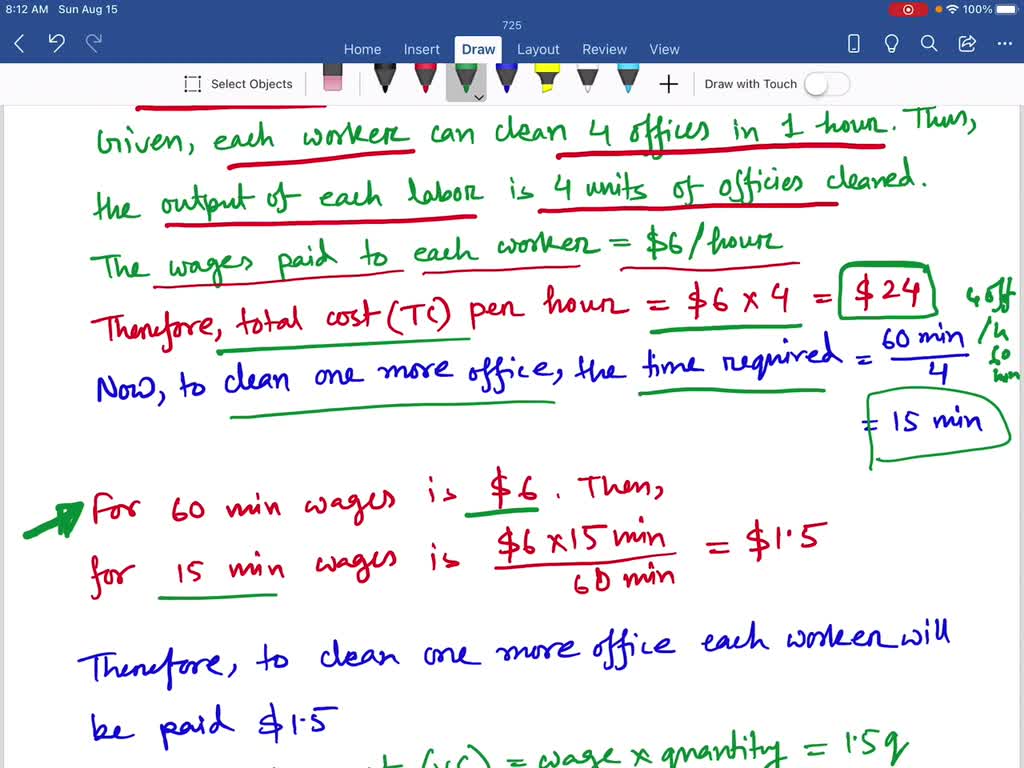 8:12 AM Sun Aug 15
100%
725
Home Insert Draw Layout Review View
Select Objects
Draw with Touch
Given, each worker can clean 4 offices in 1 hour. Thus,
the output of each labor is 4 units of officies cleaned.
The wages paid to each worker = $6/hour
Therefore, total cost (TC) per hour = $6 × 4 = $24
4 off
/h
60
min
Now, to clean one more office, the time required = 60 min / 4
= 15 min
For 60 min wages is $6. Then,
for 15 min wages is $6 × 15 min / 60 min = $1.5
Therefore, to clean one more office each worker will
be paid $1.5
= wage × quantity = 1.5q